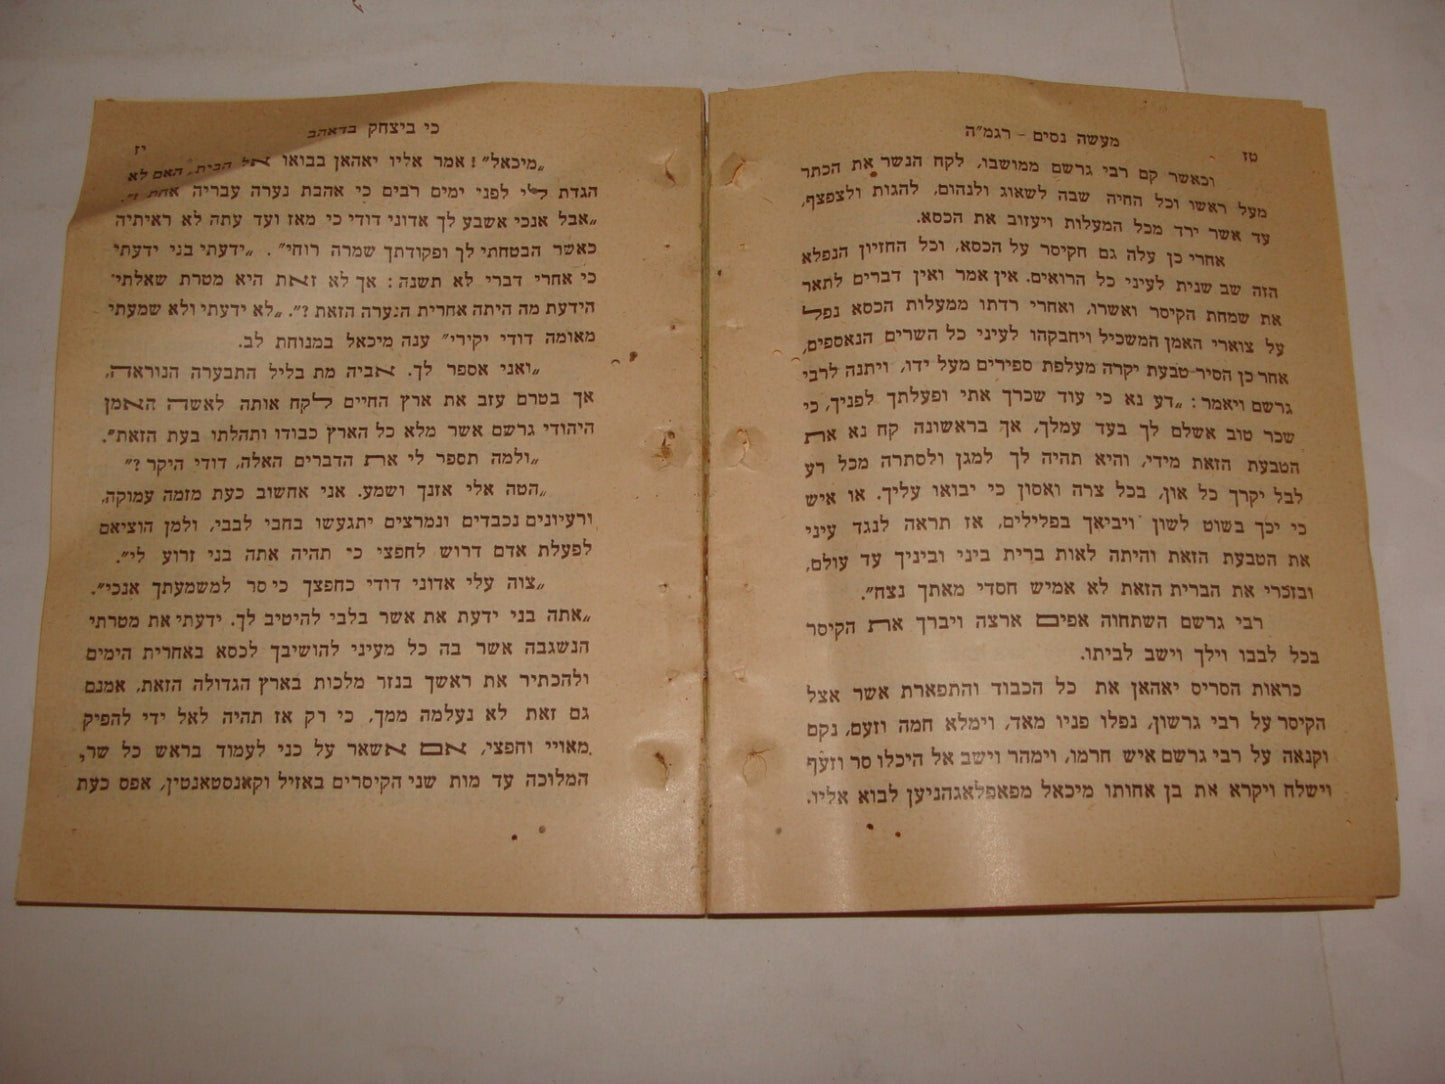 מעשה נסים – רגמ״ה
טז
וכאשר קם רבי גרשם ממושבו, לקח הנשר את הכתר
מעל ראשו וכל החיה שבה לשאוג ולנהום, להגות ולצפצף,
עד אשר ירד מכל המעלות ויעזוב את הכסא.
אחרי כן עלה גם הקיסר על הכסא, וכל החזיון הנפלא
הזה שב שנית לעיני כל הרואים. אין אמר ואין דברים לתאר
את שמחת הקיסר ואשרו, ואחרי רדתו ממעלות הכסא נפל
על צוארי האמן המשכיל ויחבקהו לעיני כל השרים הנאספים,
אחר כן הסיר טבעת יקרה מעלפת ספירים מעל ידו, ויתנה לרבי
גרשם ויאמר: „דע נא כי עוד שכרך אתי ופעלתך לפניך, כי
שכר טוב אשלם לך בעד עמלך, אך בראשונה קח נא את
הטבעת הזאת מידי, והיא תהיה לך למגן ולסתרה מכל רע
לבל יקרך כל און, בכל צרה ואסון כי יבואו עליך. או איש
כי יכך בשוט לשון ויביאך בפלילים, אז תראה לנגד עיני
את הטבעת הזאת והיתה לאות ברית ביני וביניך עד עולם,
ובזכרי את הברית הזאת לא אמיש חסדי מאתך נצח״.
רבי גרשם השתחוה אפים ארצה ויברך את הקיסר
בכל לבבו וילך וישב לביתו.
כראות הסריס יאהאן את כל הכבוד והתפארת אשר אצל
הקיסר על רבי גרשון, נפלו פניו מאד, וימלא חמה וזעם, נקם
וקנאה על רבי גרשם איש חרמו, וימהר וישב אל היכלו סר וזעף
וישלח ויקרא את בן אחותו מיכאל מפאפלאגהניען לבוא אליו.
כי ביצחק בדאהב
יז
„מיכאל״! אמר אליו יאהאן בבואו אל הבית, האם לא
הגדת לי לפני ימים רבים כי אהבת נערה עבריה אחת
„אבל אנכי אשבע לך אדוני דודי כי מאז ועד עתה לא ראיתיה
כאשר הבטחתי לך ופקודתך שמרה רוחי״. „ידעתי בני ידעתי
כי אחרי דברי לא תשנה: אך לא זאת היא מטרת שאלתי
הידעת מה היתה אחרית הנערה הזאת?״. „לא ידעתי ולא שמעתי
מאומה דודי יקירי״ ענה מיכאל במנוחת לב.
„ואני אספר לך. אביה מת בליל התבערה הנוראה,
אך בטרם עזב את ארץ החיים לקח אותה לאשה האמן
היהודי גרשם אשר מלא כל הארץ כבודו ותהלתו בעת הזאת״.
„ולמה תספר לי את הדברים האלה, דודי היקר?״
„הטה אלי אזנך ושמע. אני אחשוב כעת מזמה עמוקה,
ורעיונים נכבדים ונמרצים יתגעשו בחבי לבבי, ולמן הוציאם
לפעלת אדם דרוש לחפצי כי תהיה אתה בני זרוע לי״.
„צוה עלי אדוני דודי כחפצך כי סר למשמעתך אנכי״.
„אתה בני ידעת את אשר בלבי להיטיב לך. ידעתי את מטרתי
הנשגבה אשר בה כל מעיני להושיבך לכסא באחרית הימים
ולהכתיר את ראשך בנזר מלכות בארץ הגדולה הזאת, אמנם
גם זאת לא נעלמה ממך, כי רק אז תהיה לאל ידי להפיק
מאויי וחפצי, אם אשאר על כני לעמוד בראש כל שרי
המלוכה עד מות שני הקיסרים באזיל וקאנסטאנטין, אפס כעת